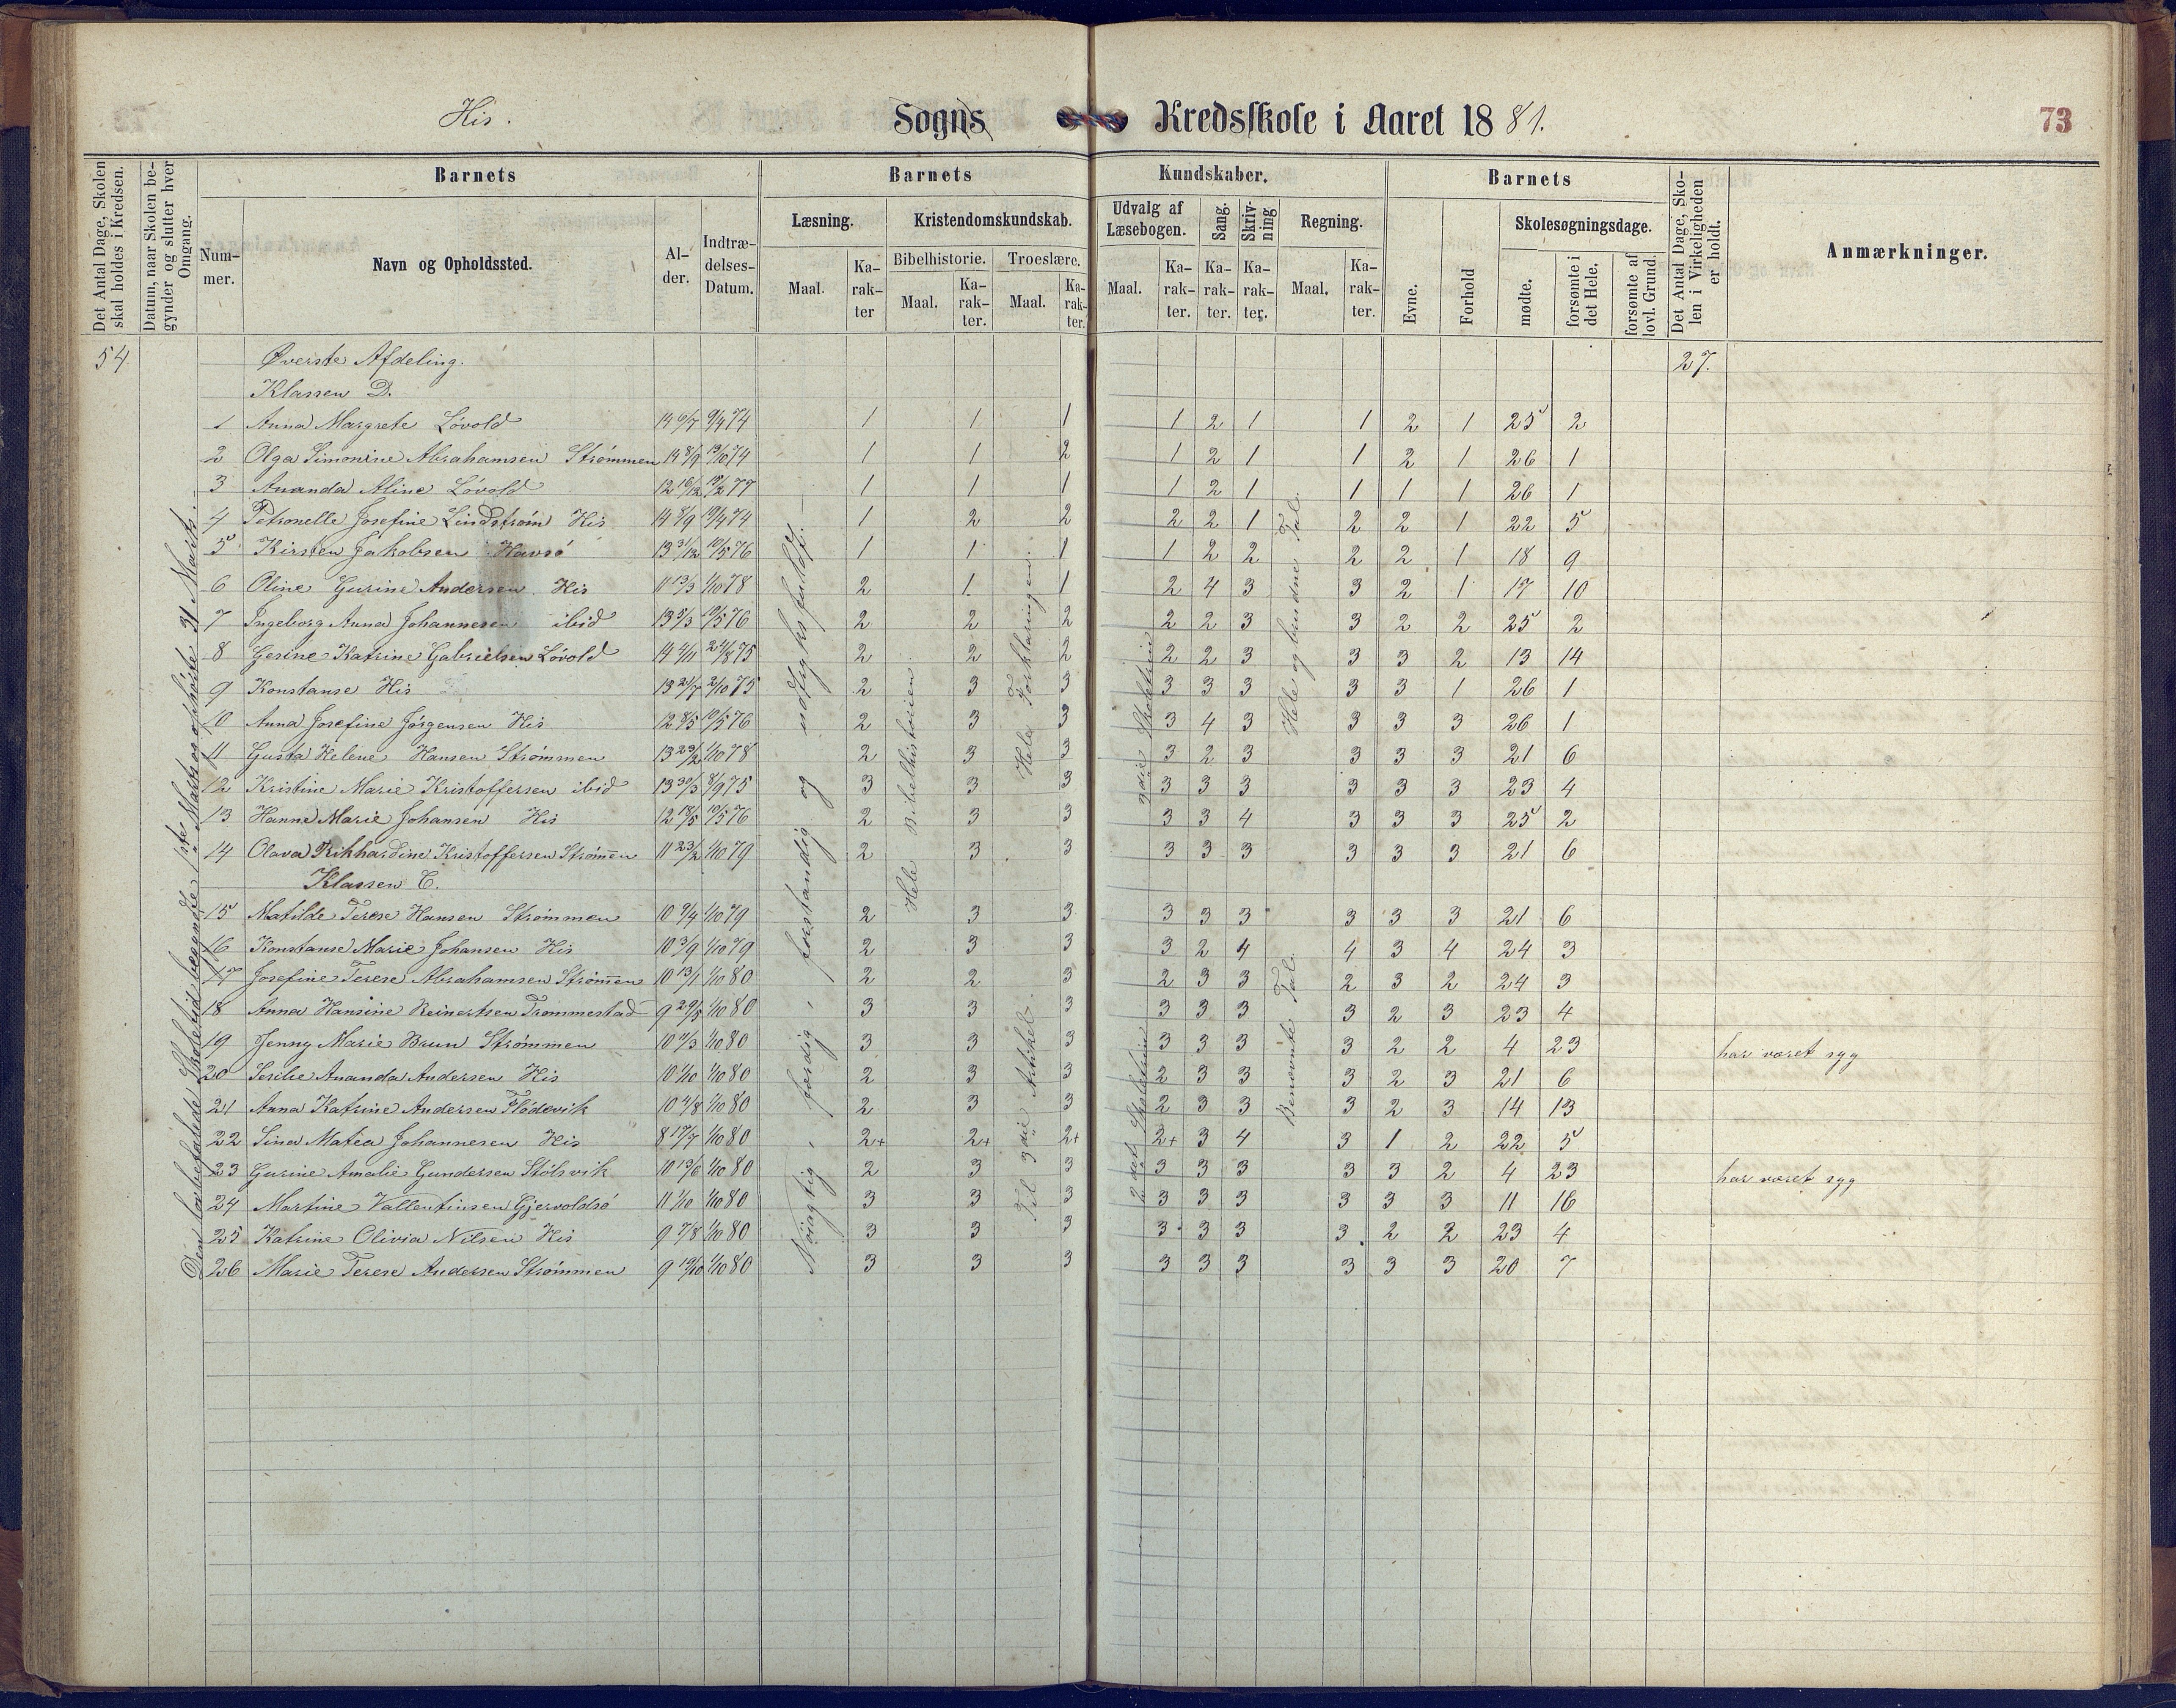 His. Sogns Kredsskole i Aaret 1881. 73
Det Antal Dage, Skolen skal holdes i Kredsen.
Datum, naar Skolen begynder og slutter hver Omgang.
Barnets
Nummer.
Navn og Opholdssted.
Alder.
Indtrædelses-Datum.
Barnets Kundskaber.
Læsning. Maal. Karakter
Kristendomskundskab.
Bibelhistorie. Maal. Karakter.
Troeslære. Maal. Karakter.
Udvalg af Læsebogen. Maal. Karakter.
Sang. Karakter.
Skrivning Karakter.
Regning. Maal. Karakter.
Barnets
Evne.
Forhold
Skolesøgningsdage.
mødte.
forsømte i det Hele.
forsømte af lovl. Grund.
Det Antal Dage, Skolen i Virkeligheden er holdt.
Anmærkninger.
54 Øverste Afdeling. 27.
Klassen D.
1 Anna Margrete Lövold 14 6/7 9/4 74 1 1 1 1 2 1 1 2 1 25 2
2 Olga Simonine Abrahamsen Strömmen 14 8/9 13/10 74 1 1 2 1 2 1 1 2 1 26 1
3 Ananda Aline Lövold 12 16/12 77 1 1 1 1 2 1 1 1 1 26 1
4 Petronelle Josefine Lindström His 14 8/9 74 1 2 2 2 2 1 2 2 1 22 5
5 Kirsten Jakobsen Havsö 13 31/12 10/5 76 1 1 1 1 2 2 2 2 1 18 9
6 Oline Gurine Andersen His 11 13/3 1/10 78 2 1 1 2 4 3 3 2 1 17 10
7 Ingeborg Anna Johannesen ibid 13 5/3 10/5 76 2 2 2 2 2 3 3 2 2 25 2
8 Gesine Katrine Gabrielsen Lövold 14 4/11 24/8 75 2 2 2 2 2 3 3 3 2 13 14
9 Konstanse His 13 21/7 2/10 75 2 3 3 3 3 3 3 3 1 26 1
10 Anna Josefine Jörgensen His 12 8/5 10/5 76 2 3 3 3 4 3 3 3 3 26 1
11 Gusta Helene Hansen Strömmen 13 23/2 1/10 78 2 3 3 3 2 3 3 3 3 21 6
12 Kristine Marie Kristoffersen ibid 13 30/3 8/9 75 3 3 3 3 3 3 3 3 3 23 4
13 Hanne Marie Johansen His 12 18/5 10/5 76 2 3 3 3 3 4 3 3 3 25 2
14 Olava Rikhardine Kristoffersen Strömen 11 23/2 1/10 79 2 3 3 3 3 3 3 3 3 21 6
Klassen C.
15 Matilde Terese Hansen Strömmen 10 9/4 1/10 79 2 3 3 3 3 3 3 3 3 21 6
16 Konstanse Marie Johansen His 10 3/9 1/10 79 2 3 3 3 2 4 4 3 4 24 3
17 Josefine Terese Abrahamsen Strömen 10 13/1 1/10 80 2 2 3 2 3 3 2 3 2 24 3
18 Anna Hansine Reinertsen Trommestad 9 29/5 1/10 80 3 3 3 3 3 3 3 2 3 23 4
19 Jenny Marie Brun Strömmen 10 11/3 1/10 80 3 3 3 3 3 3 3 2 2 4 23 har været syg
20 Ananda Andersen His 10 1/10 1/10 80 2 3 3 2 3 3 3 2 3 21 6
21 Anna Katrine Andersen Flödevik 10 4/8 1/10 80 2 3 3 2 3 3 3 2 3 14 13
22 Sina Matea Johannesen His 8 17/7 1/10 80 2+ 2+ 2+ 2+ 3 4 3 1 2 22 5
23 Gurine Amalie Gundersen Stölsvik 10 19/6 1/10 80 2 3 3 3 3 3 3 3 2 4 23 har været syg
24 Martine Vallentinsen Gjervoldsö 11 1/10 1/10 80 3 3 3 3 3 3 3 3 3 11 16
25 Katrine Olivia Nilsen His 9 7/8 1/10 80 3 3 3 3 3 3 3 2 2 23 4
26 Marie Terese Andersen Strömmen 9 19/10 1/10 80 3 3 3 3 3 3 3 3 3 20 7
Den lovbefalede Skoletid begyndte 1ste Marts og ophörte 31 Marts.
Nöiagtig, færdig, forstandig og indtryksfuldt.
Hele Bibelhistorien.
Hele Forklaringen.
Til 3die Artikel.
3die Skoletrin
2det Skoletrin
Hele og brudne Tal.
Benævnte Tal.